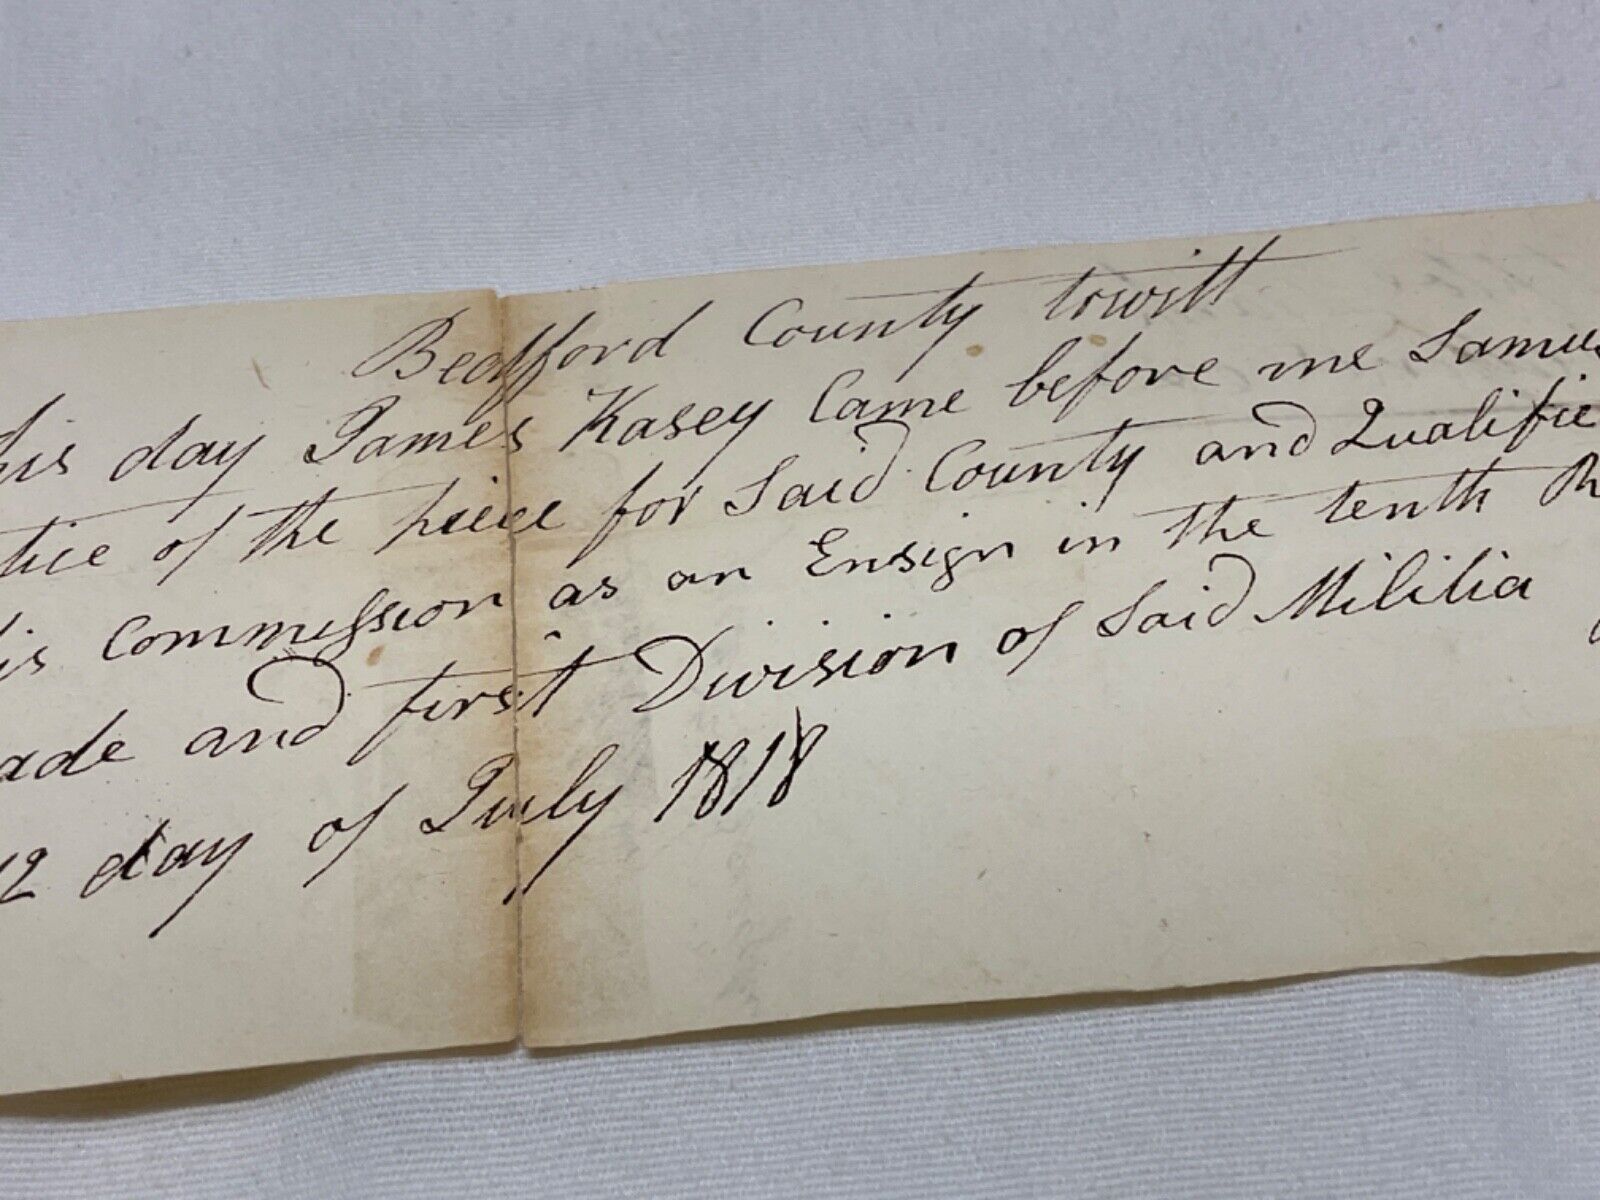 Bedfford County towitt
his day James Kasey Came before me Samu
tice of the piece for Said County and Qualifie
is Commission as an Ensign in the tenth R
ade and first Division of Said Militia
12 day of July 1818